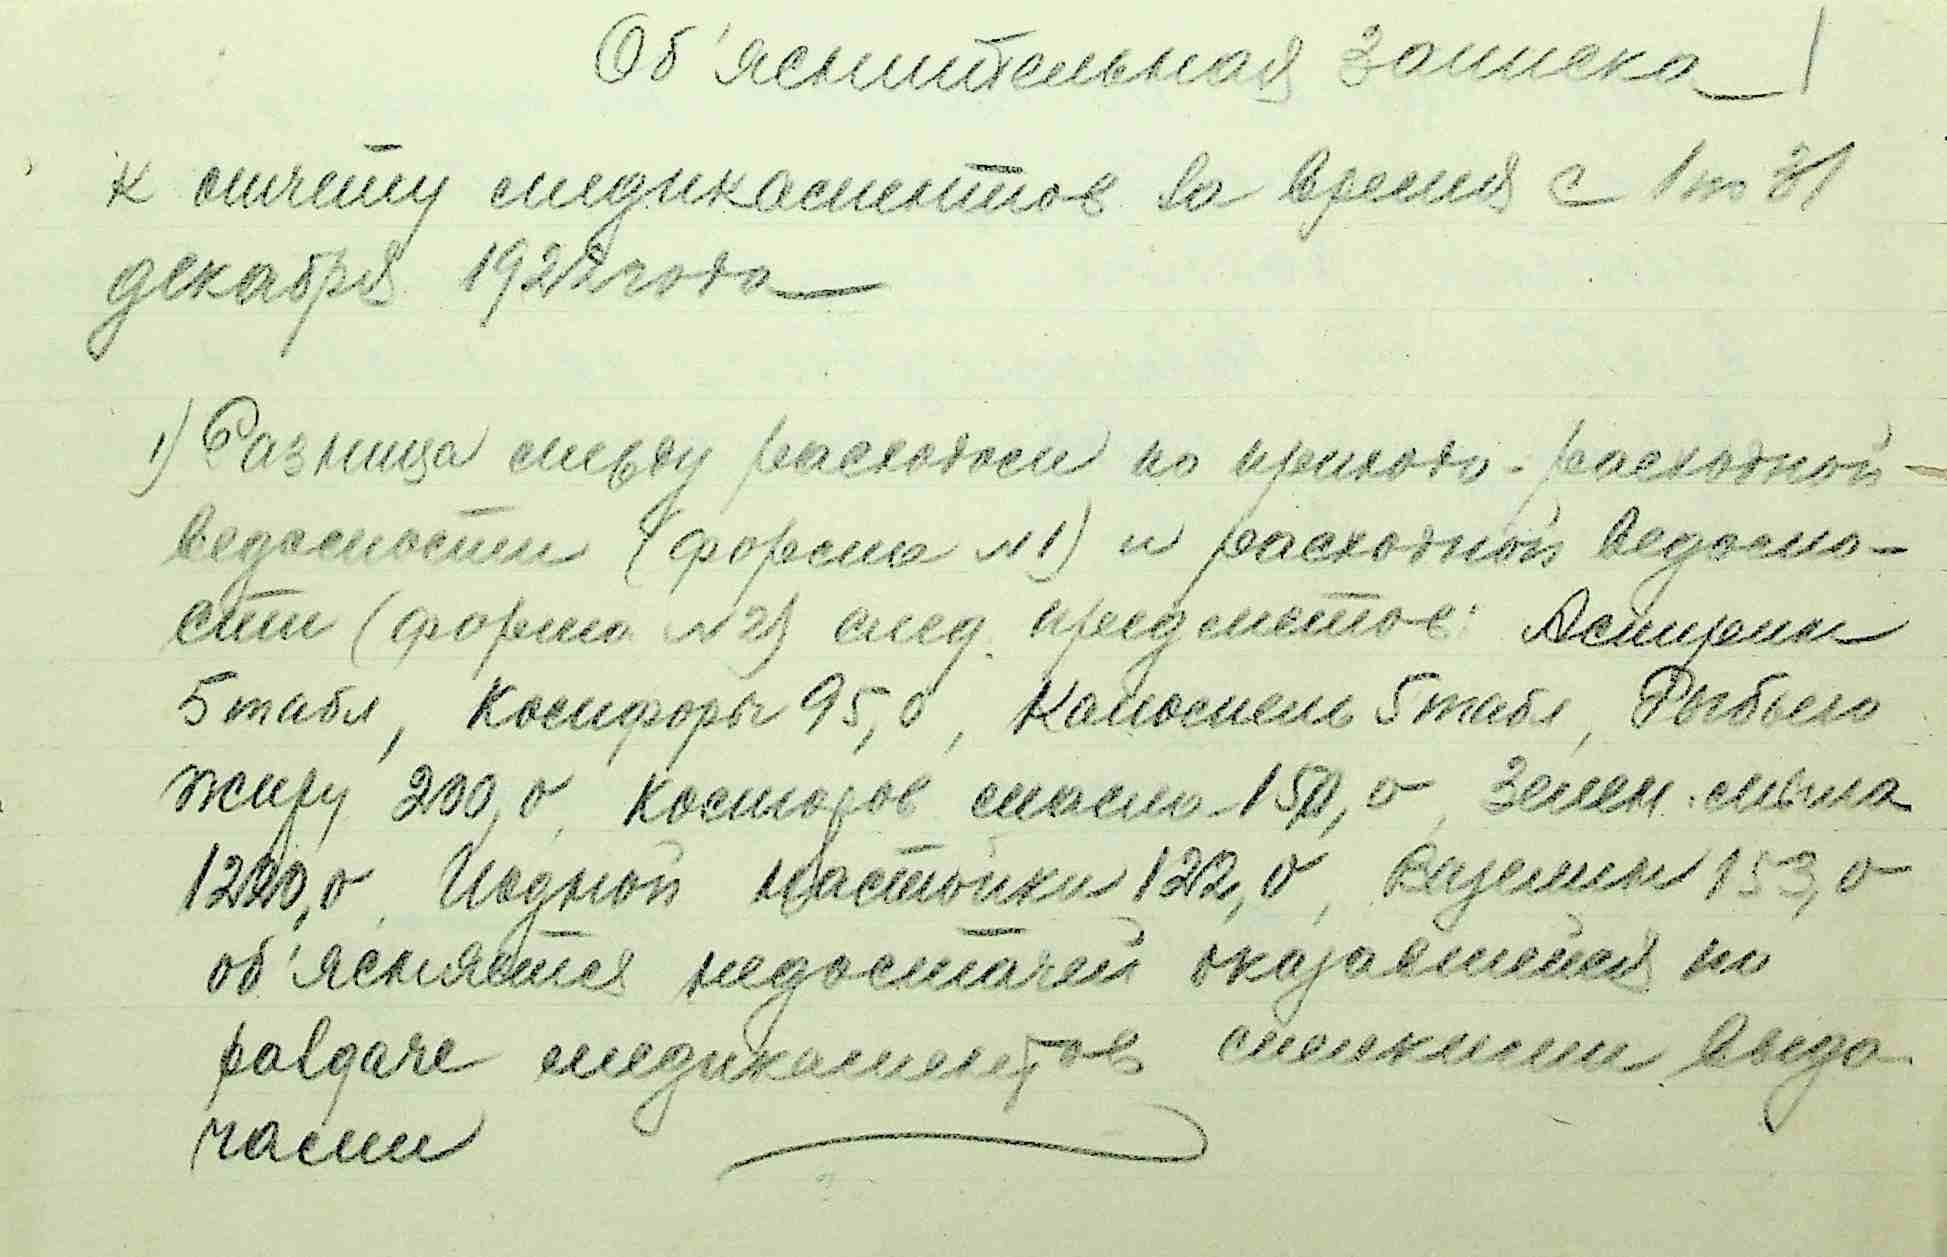 Об'яснительная записка
к отчету медикаментов за время с 1 по 31
декабря 1922 года
1) Разница между расходом по приходо-расходной
ведомости (форма №1) и расходной ведомо-
сти (форма №2) след. предметов: Аспирин
5 табл, Камфоры 95,0, Каломель 5 табл, Рыбьего
жиру 200,0, Касторов масла 150,0, Зелен. мыла
1220,0, Иодной настойки 122,0, Вазелин 153,0
об'ясняется недостачей оказавшейся по
раздаче медикаментов мелкими выда
чами